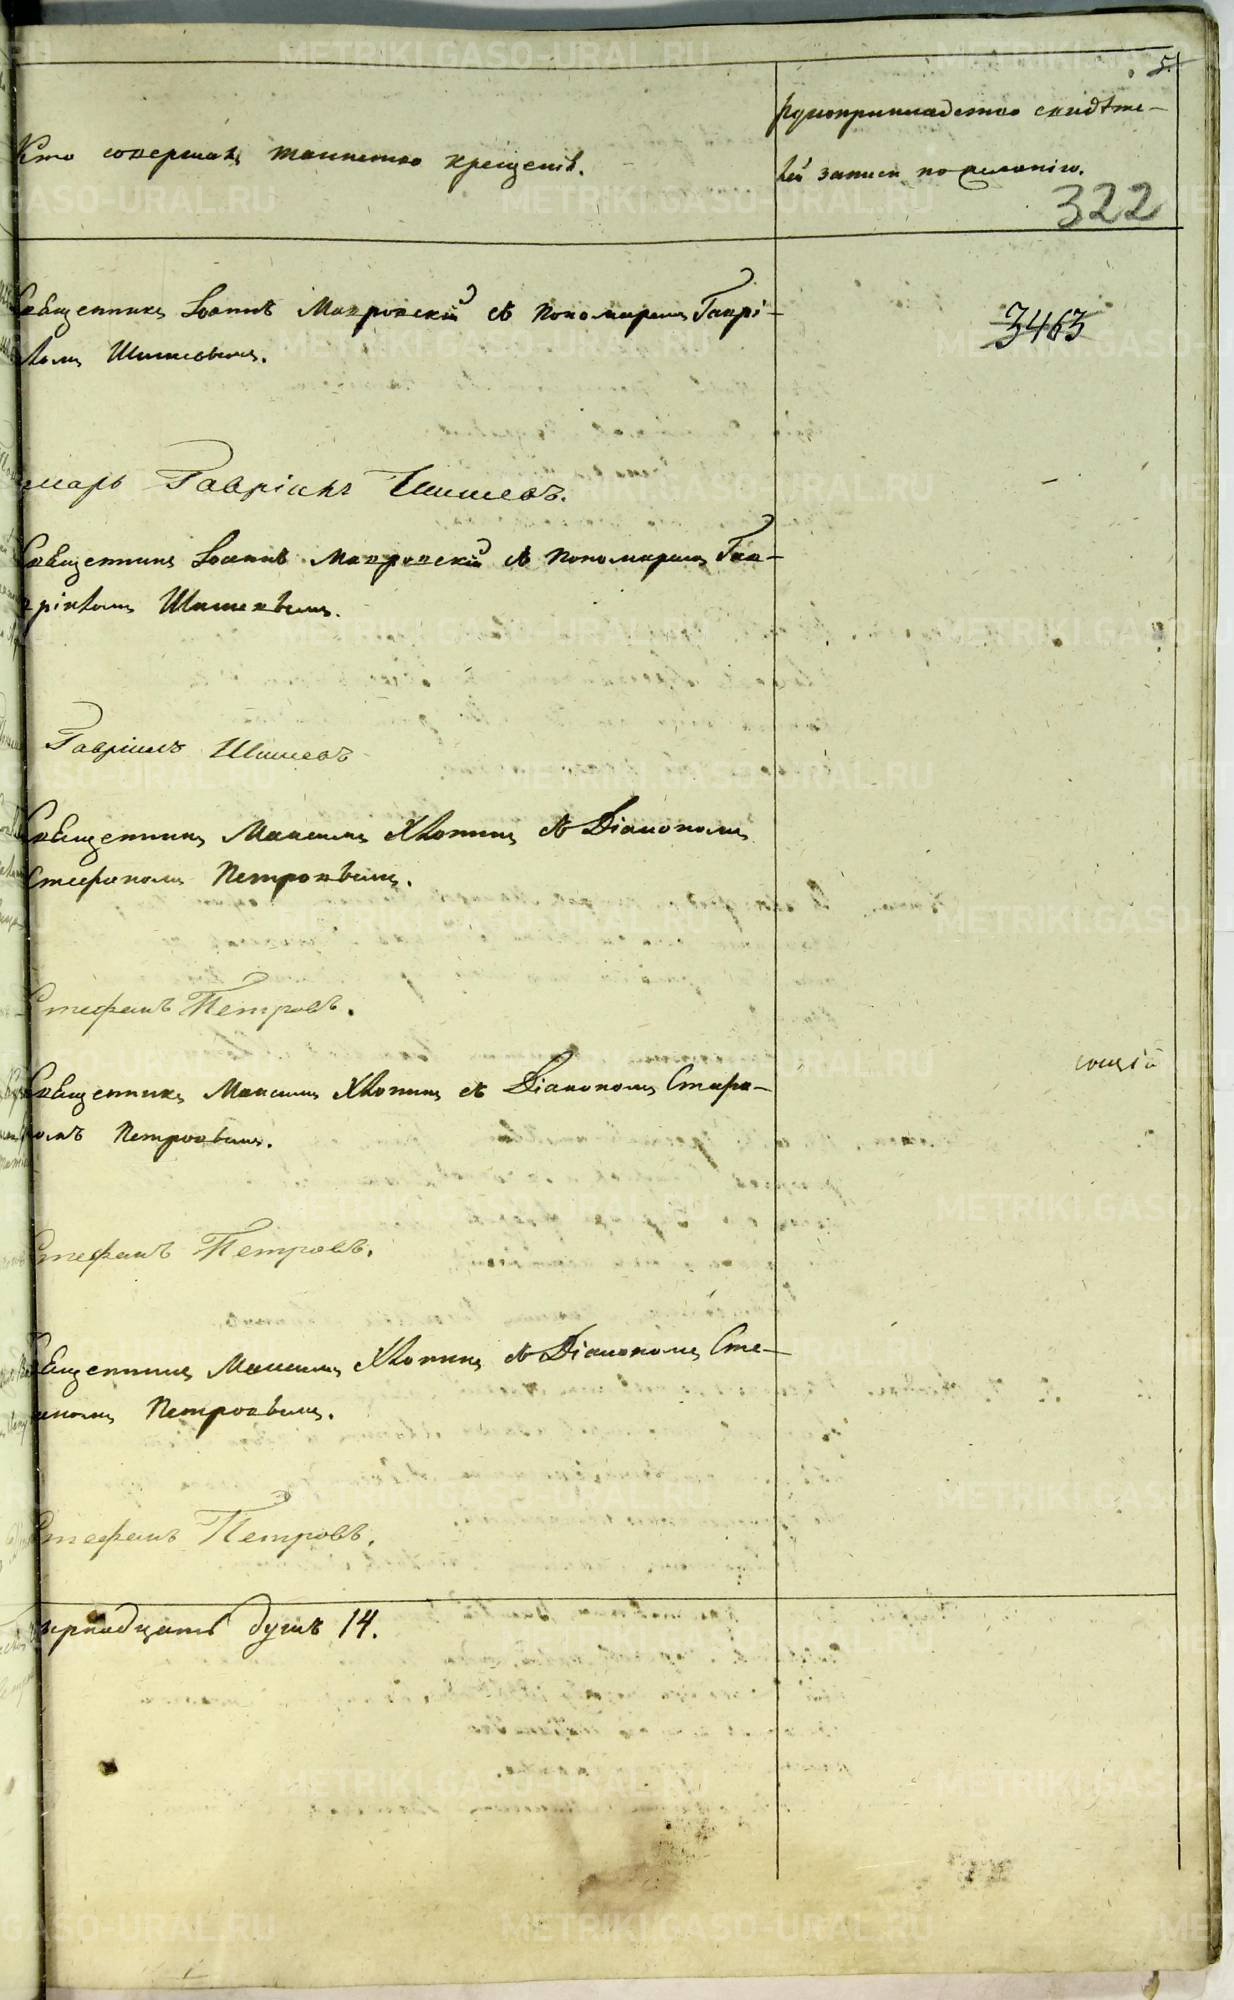 5.
Кто совершалъ таинство крещенія.
Рукоприкладство свидѣте-
лей записи по желанію.
322
Священникъ Іоаннъ Мавровскій съ Пономаремъ Гаврі-
ломъ Шишевымъ.
3463
марь Гавріилъ Шишевъ.
Священникъ Іоаннъ Мавровскій съ Пономаремъ Гав-
ріиломъ Шишевымъ.
Гавріилъ Шишевъ
Священникъ Максимъ Хлопинъ съ Діакономъ
Стефаномъ Петровымъ.
Стефанъ Петровъ.
Священникъ Максимъ Хлопинъ съ Діакономъ Стефа-
номъ Петровымъ.
Стефанъ Петровъ.
Священникъ Максимъ Хлопинъ съ Діакономъ Сте-
аномъ Петровымъ.
Стефанъ Петровъ.
ырнадцать душъ 14.
METRIKI.GASO-URAL.RU